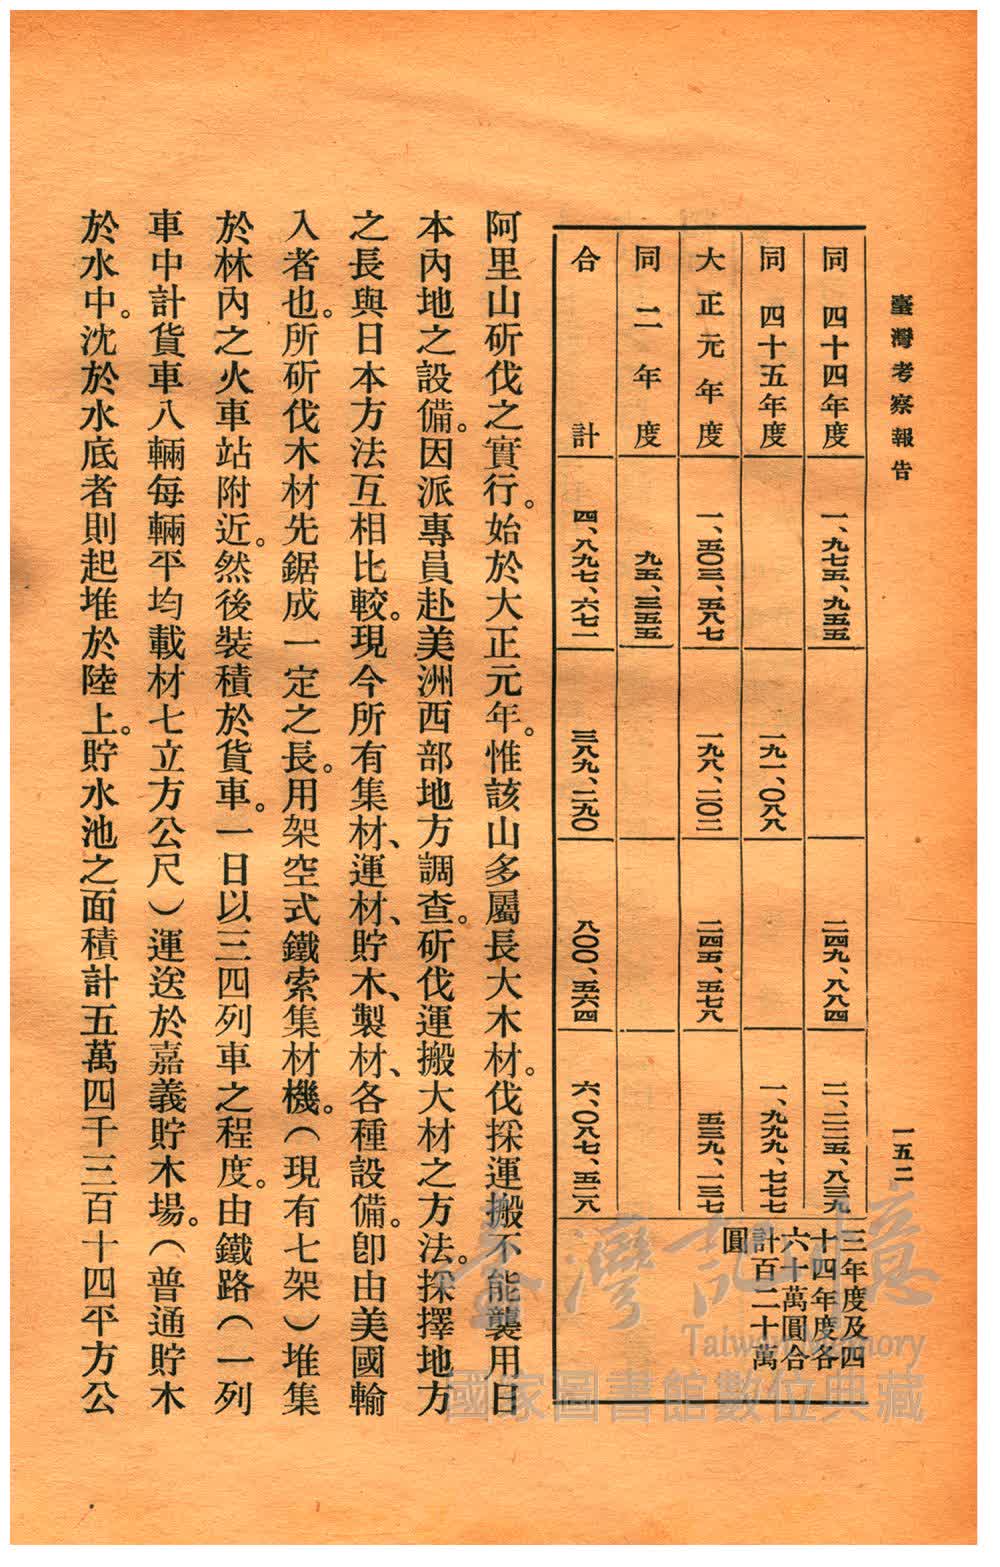 臺灣考察報告
一五二
同四十四年度 一、九七五、九五五 二四九、八八四 二、二二五、八三九 三年度及四十四年度各六十萬圓合計百二十萬圓
同四十五年度 一九一、〇八八 一、九九九、七七七
大正元年度 一、五〇三、五八七 一九八、二〇二 二四五、五七八 五三九、一三七
同二年度 九五、三五五
合計 四、八九七、六七一 三八九、二九〇 八〇〇、五六四 六、〇八七、五二八
阿里山斫伐之實行。始於大正元年。惟該山多屬長大木材。伐採運搬不能襲用日
本內地之設備。因派專員赴美洲西部地方調查。斫伐運搬大材之方法。採擇地方
之長與日本方法互相比較。現今所有集材、運材、貯木、製材、各種設備。卽由美國輸
入者也。所斫伐木材先鋸成一定之長。用架空式鐵索集材機。(現有七架)堆集
於林內之火車站附近。然後裝積於貨車。一日以三四列車之程度。由鐵路(一列
車中計貨車八輛每輛平均載材七立方公尺)運送於嘉義貯木場。(普通貯木
於水中。沈於水底者則起堆於陸上。貯水池之面積計五萬四千三百十四平方公
臺灣記憶
Taiwan Memory
國家圖書館數位典藏